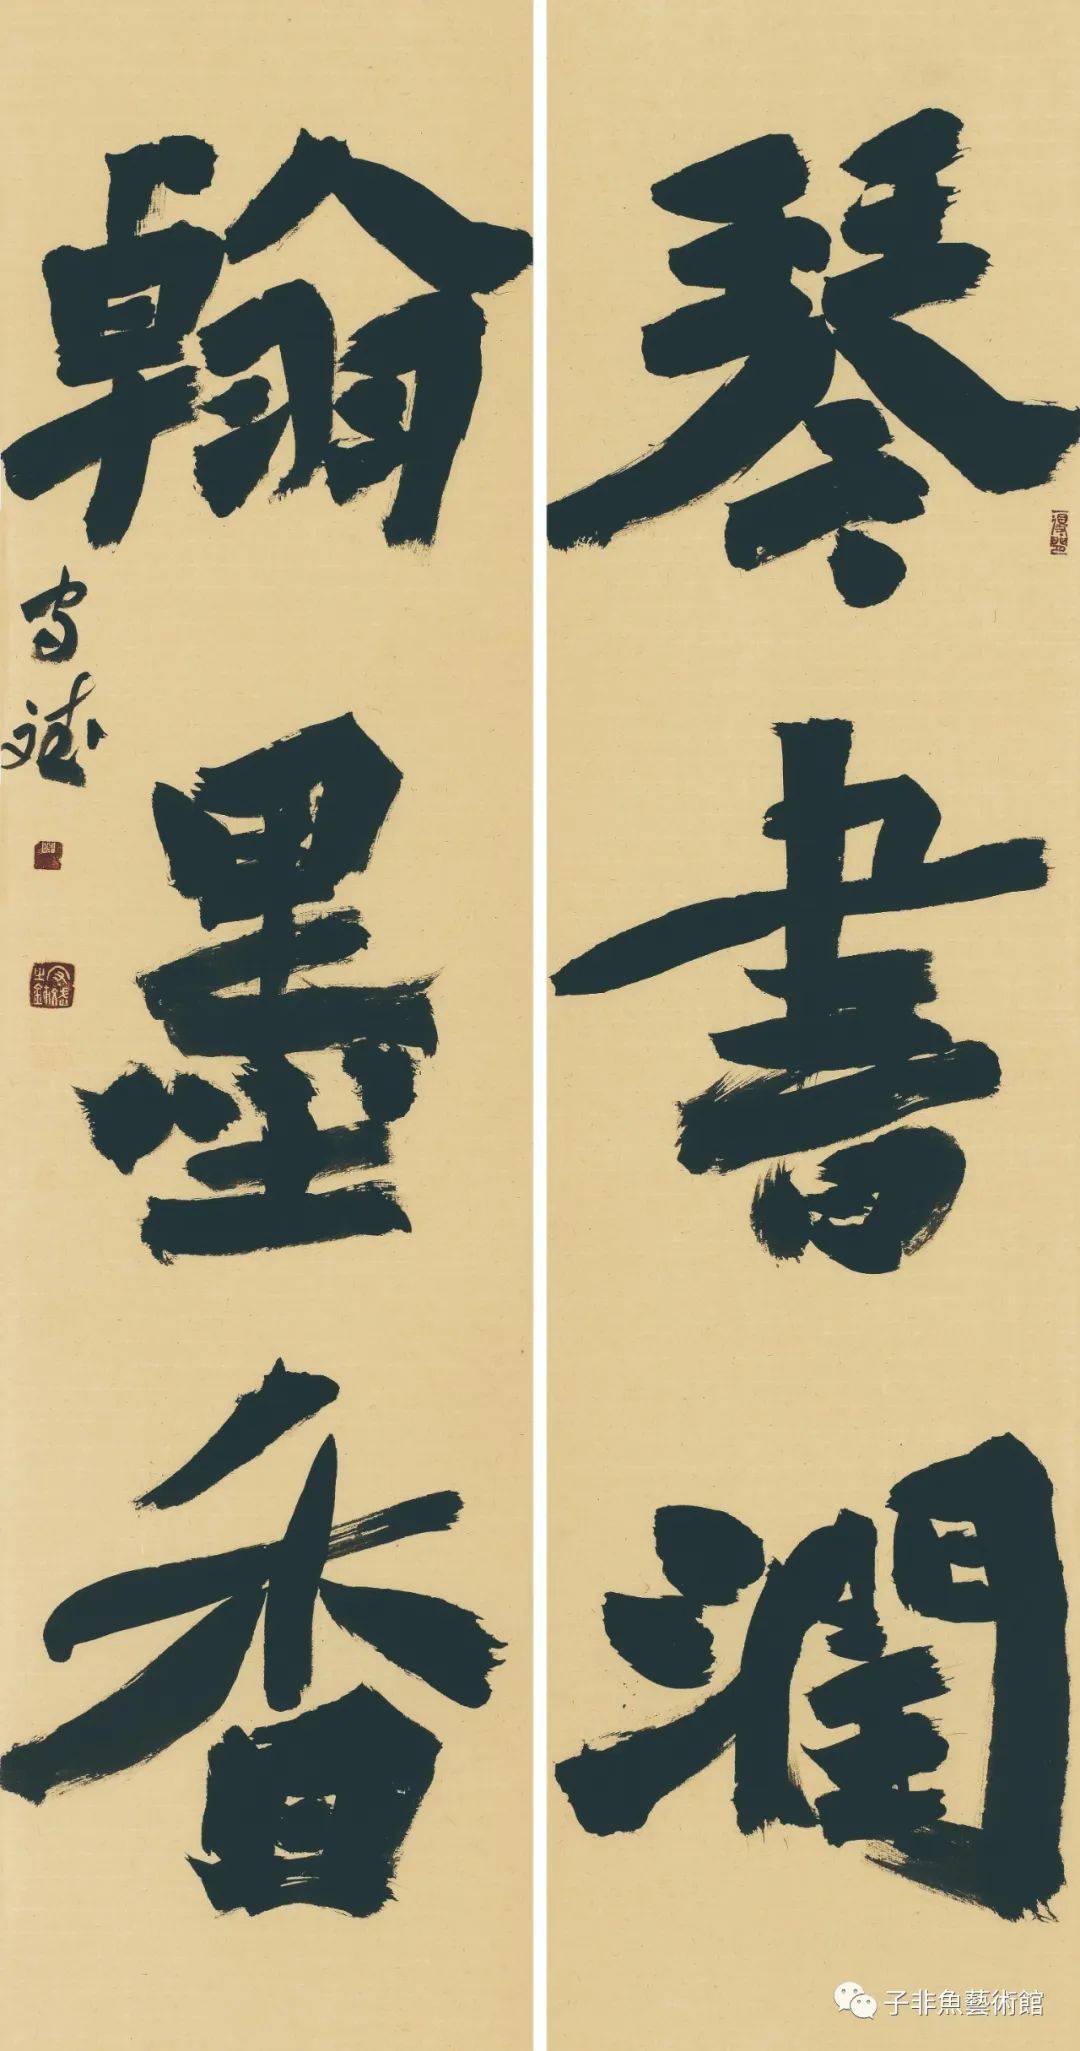 琴書潤
翰墨香
守斌
子非魚藝術館